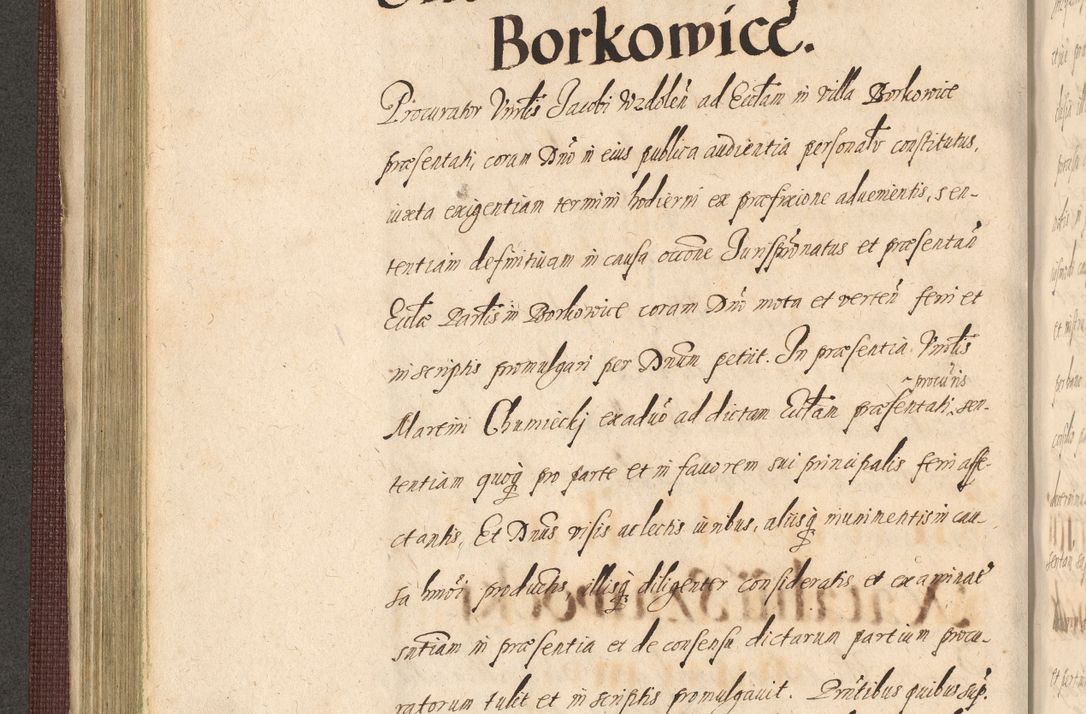 Borkowice.
Procurator Vnrłis Jacobi Wzdoleń ad Eccłam in villa Borkowice
præsentati, coram Dnō in eius publica audientia personałr constitutus,
iuxta exigentiam termini hodierni ex præfixione aduenientis, sen-
tentiam definitiuam in causa occōne Jurispr̄onatus et præsentań
Eccłæ Parłis in Borkowice coram Dnō mota et verteń ferri et
in scriptis promulgari per Dnum petiit. In præsentia Vnrłis
procūris
Martini Chumieckj ex aduō ad dictam Eccłam præsentati, sen-
tentiam quoq pro parte et in fauorem sui principalis ferri affe-
ctantis, Et Dnus visis ac lectis iuribus, aliisq munimentis in cau-
sa hmōi productis, illisq diligenter consideratis et examinat
sntiam in præsentia et de consensu dictarum partium procu-
ratorum tulit et in scriptis promulgauit. Prńtibus quibus sup.